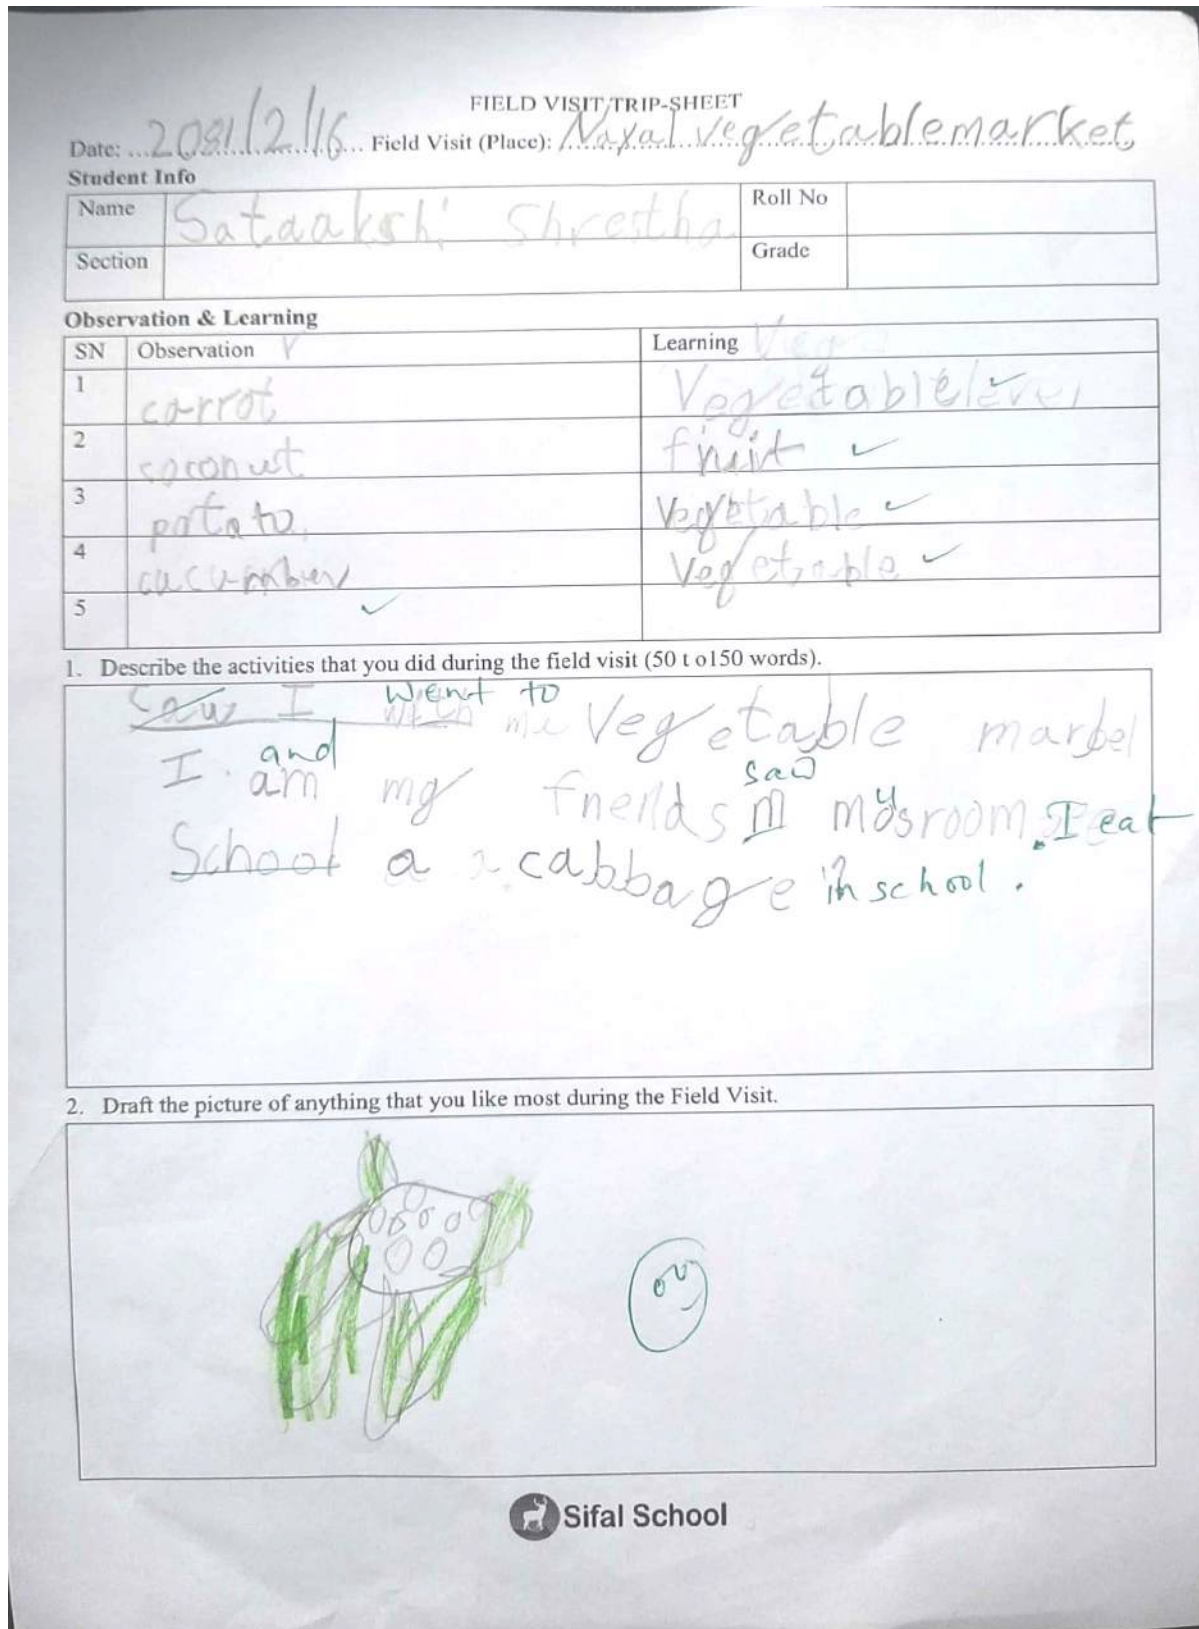 FIELD VISIT/TRIP-SHEET
Date: 2081/2/16 Field Visit (Place): Naxal vegetablemarket
Student Info
Name Sataakshi Shrestha Roll No
Section Grade
Observation & Learning
SN Observation Learning
1 carrot Vegetable
2 coconut fruit
3 potato Vegetable
4 cucumber Vegetable
5
1. Describe the activities that you did during the field visit (50 t o150 words).
went to
Saw I me Vegetable
and saw
I am my fneilds mosroom I eat
School a cabbage in school.
2. Draft the picture of anything that you like most during the Field Visit.
Sifal School